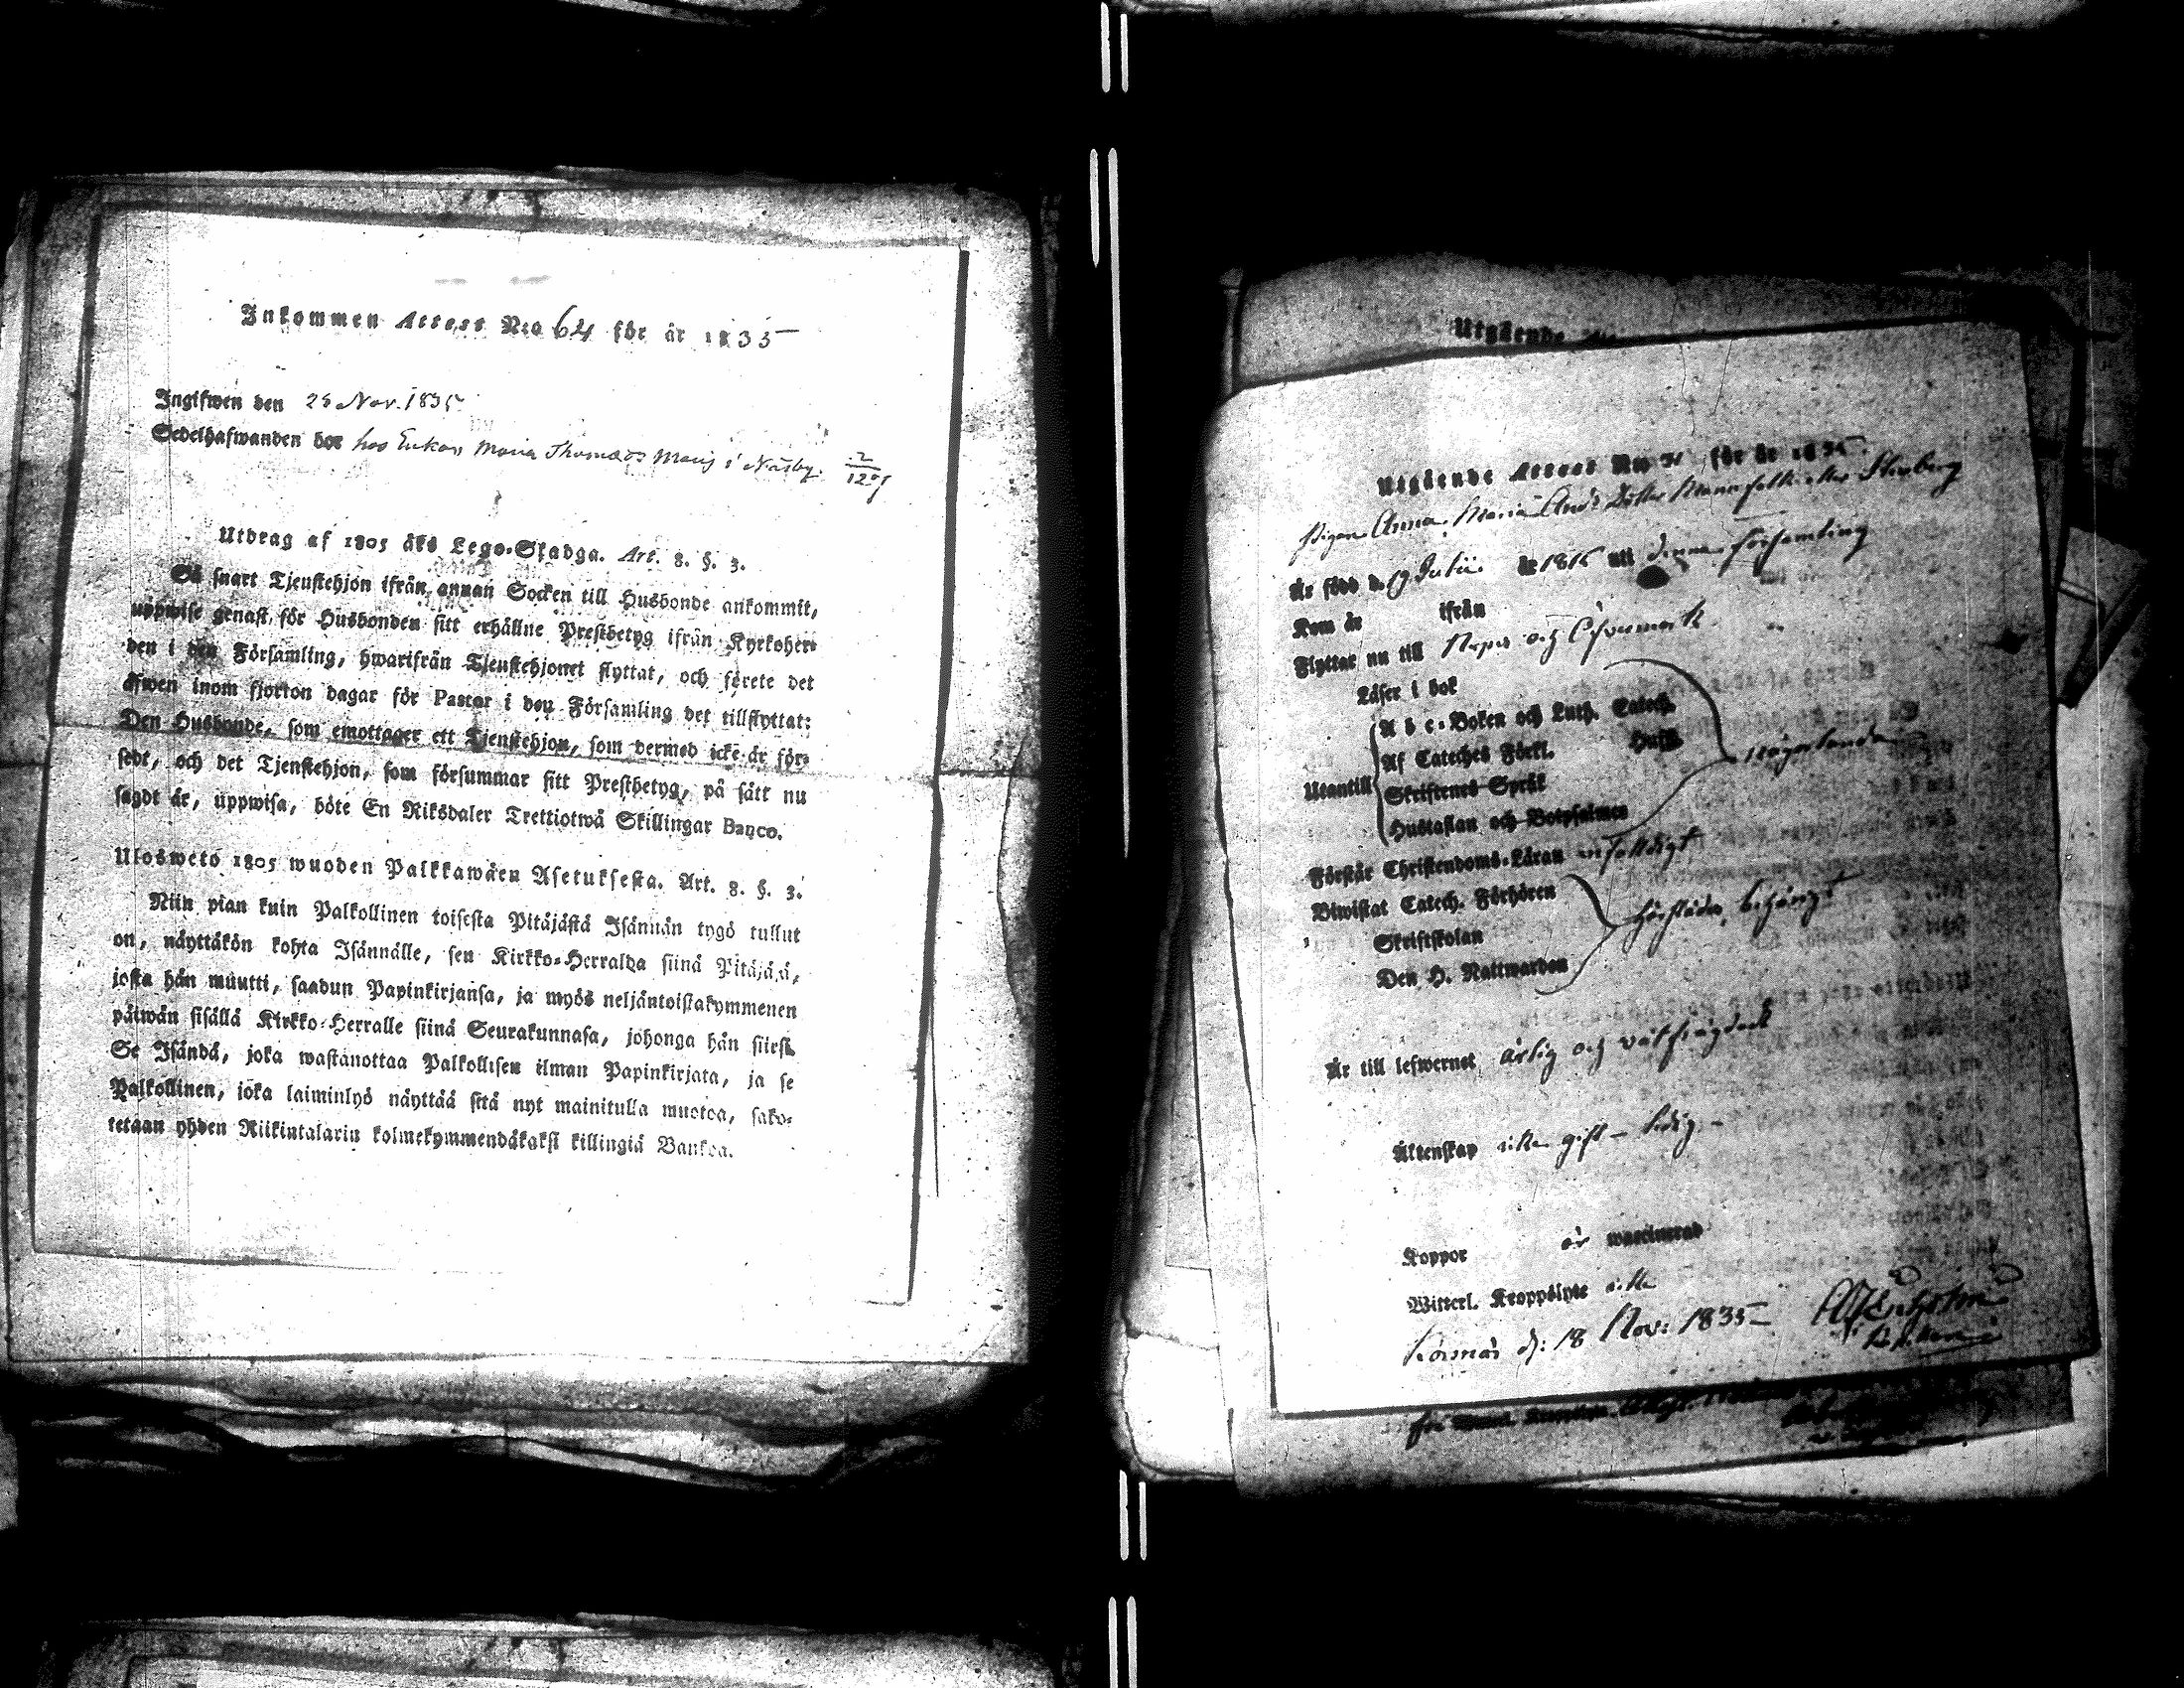 Inkommen Attest N:o 64 för år 1835
Ingifwen den 25 Nov. 1835
Sedelhafwanden bor hos Enkan Maria Thomasos Marij i Näsby. 2/1209
Utdrag af 1805 års Lego-Stadga. Art. 8. §. 3.
Så snart Tjenstehjon ifrån annan Socken till Husbonde ankommit,
uppwise genast för Husbonden sitt erhållne Prestbetyg ifrån Kyrkoher-
den i den Församling, hwarifrån Tjenstehjonet flyttat, och förete det
äfwen inom fjorton dagar för Pastor i den Församling det tillflyttat:
Den Husbonde, som emottager ett Tjenstehjon, som dermed icke är för-
sedt, och det Tjenstehjon, som försummar sitt Prestbetyg, på sätt nu
sagdt är, uppwisa, böte En Riksdaler Trettiotwå Skillingar Banco.
Uloswetö 1805 wuoden Palkkawäen Asetuksesta. Art. 8. §. 3.
Niin pian kuin Palkollinen toisesta Pitäjästä Isännän tygö tullut
on, näyttäkön kohta Isännälle, sen Kirkko-Herralda siinä Pitäjää,
josta hän muutti, saadun Papinkirjansa, ja myös neljäntoistakymmenen
päiwän sisällä Kirkko-Herralle siinä Seurakunnasa, johonga hän siirsi.
Se Isändä, joka wastanottaa Palkollisen ilman Papinkirjata, ja se
Palkollinen, joka laiminlyö näyttää sitä nyt mainitulla muotoa, sako-
tetaan yhden Riikintalarin kolmekymmendäkaksi killingiä Bankoa.
Utgående
Utgående Attest N:o 31 för år 1835.
Pigan Anna Maria And:s Dotter Mannfolk eller Stenberg
Är född d. 19 Julii år 1816 uti denna församling
Kom år ifrån
Flyttar nu till Nerpes och Öfvermark
Läser i bok
Utantill
A b c-Boken och Luth. Catech.
Af Cateches Förkl.
Skriftenes Språk
Hustaflan och Botpsalmen
någorlunda
Förstår Christendoms-Läran enfaldigt
Biwistat Catech. Förhören
Skriftskolan
Den H. Nattwarden
Är till lefwernet ärlig och välfrägdad
Äktenskap icke gift – ledig –
Koppor är waccinerad
Witterl. Kroppslyte icke
Korsnäs d: 18 Nov: 1835